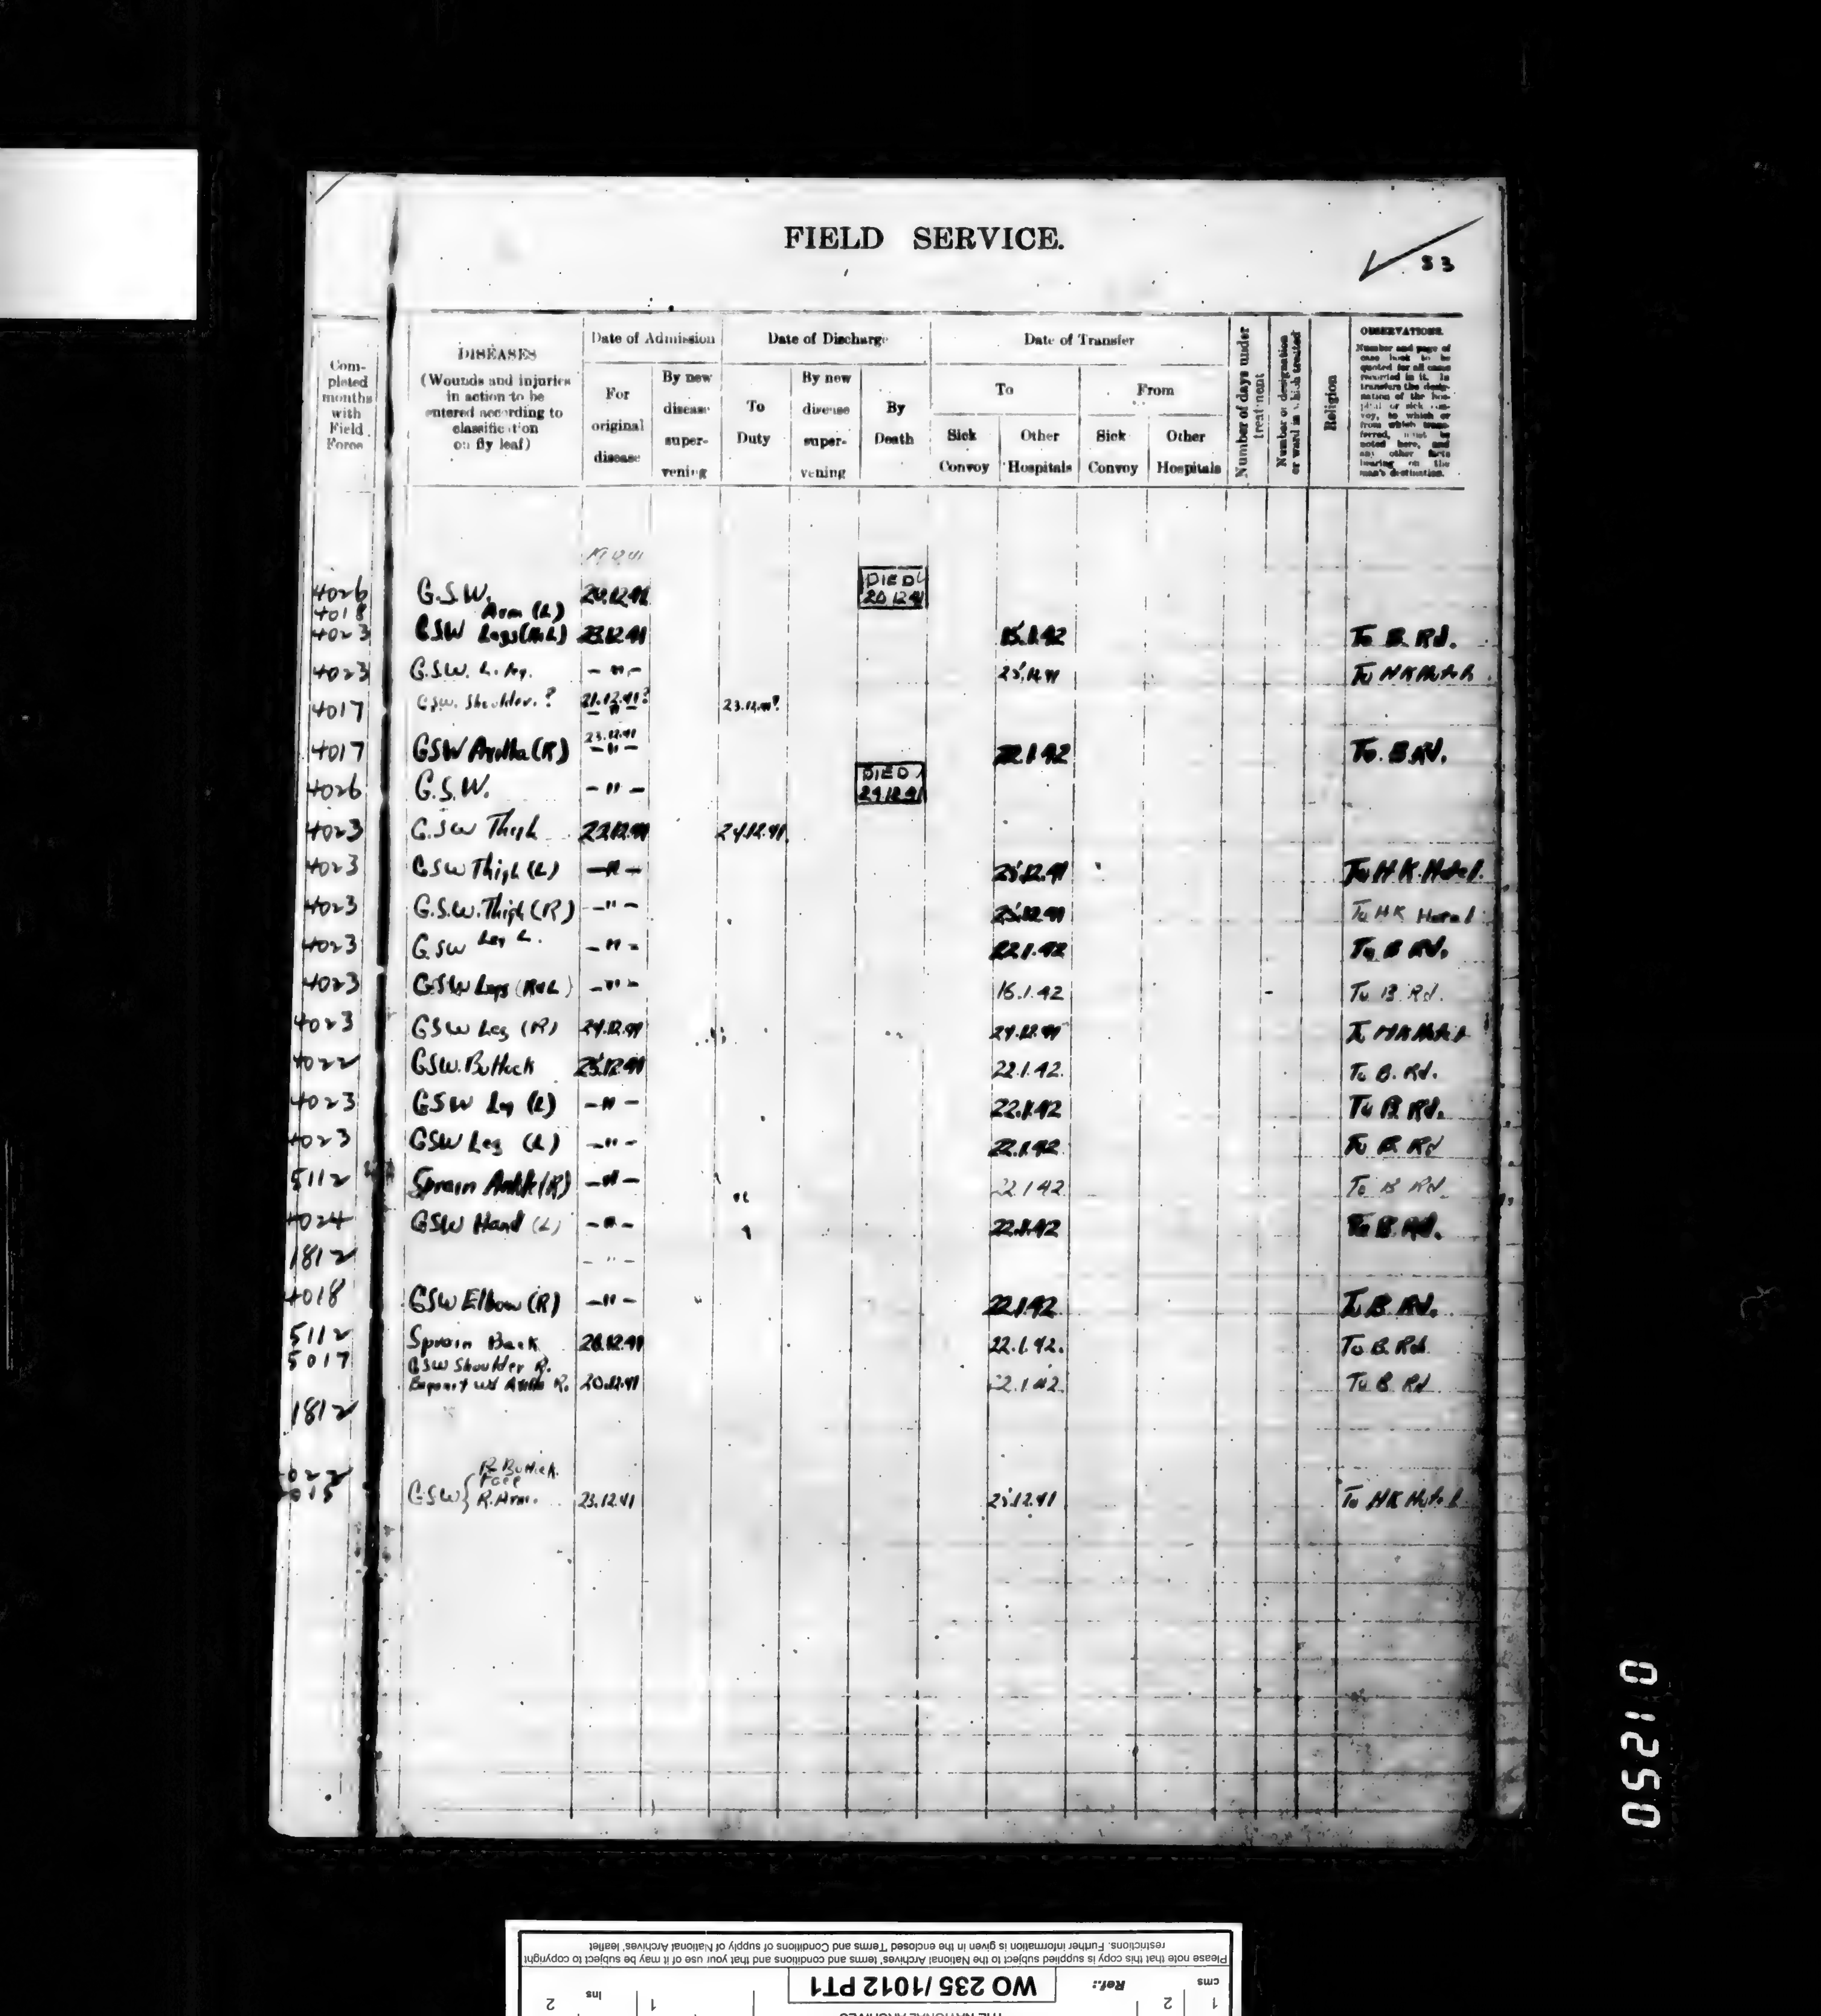 FIELD SERVICE.
83
Completed months with Field Force
DISEASES
(Wounds and injuries in action to be entered according to classification on fly leaf)
Date of Admission
For original disease
By new disease supervening
Date of Discharge
To Duty
By new disease supervening
By Death
Date of Transfer
To
Sick Convoy
Other Hospitals
From
Sick Convoy
Other Hospitals
Number of days under treatment
Number or designation or ward in which treated
Religion
OBSERVATIONS.
Number and page of case book to be quoted for all cases recorded in it. In transfers the designation of the hospital or sick convoy, to which or from which transferred, must be noted here, and any other facts bearing on the man's destination.
19.12.41
4026 G.S.W. 20.12.41 DIED 20 12 41
4018 Arm (L)
4023 GSW Legs (R&L) 23.12.41 15.1.42 To B. Rd.
4023 G.S.W. L. Leg. -"- 25.12.41 To HK Hotel
4017 GSW. Shoulder. ? 21.12.41? -"- 23.12.41?
23.12.41
4017 GSW Axilla (R) -"- 22.1.42 To. B Rd.
4026 G.S.W. -"- DIED 24 12 41
4023 G.SW Thigh 23.12.41 24.12.41.
4023 GSW Thigh (L) -"- 25.12.41 To HK Hotel.
4023 G.S.W. Thigh (R) -"- 25.12.41 To HK Hotel
4023 G.SW Leg L. -"- 22.1.42 To B Rd.
4023 GSW Legs (R&L) -"- 16.1.42 To B. Rd.
4023 GSW Leg (R) 24.12.41 24.12.41 To HK Hotel
4022 GSW. Buttock 25.12.41 22.1.42. To B. Rd.
4023 GSW Leg (L) -"- 22.1.42 To B Rd.
4023 GSW Leg (L) -"- 22.1.42 To B. Rd
5112 Sprain Ankle (R) -"- 22.1.42 To B Rd.
4024 GSW Hand (L) -"- 22.1.42 To B Rd.
1812 -"-
4018 GSW Elbow (R) -"- 22.1.42 To B. Rd.
5112 Sprain Back 20.12.41 22.1.42. To B. Rd.
5017 GSW Shoulder R.
Bayonet wd Axilla R. 20.12.41 22.1.42. To B Rd
1812
022 R Buttock.
Face
015 GSW { R. Arm. 23.12.41 25.12.41 To HK Hotel
05210
Please note that this copy is supplied subject to the National Archives' terms and conditions and that your use of it may be subject to copyright
restrictions. Further information is given in the enclosed 'Terms and Conditions of supply of National Archives' leaflet
cms 1 2
Ref.: WO 235/1012 PT1
ins 1 2
THE NATIONAL ARCHIVES